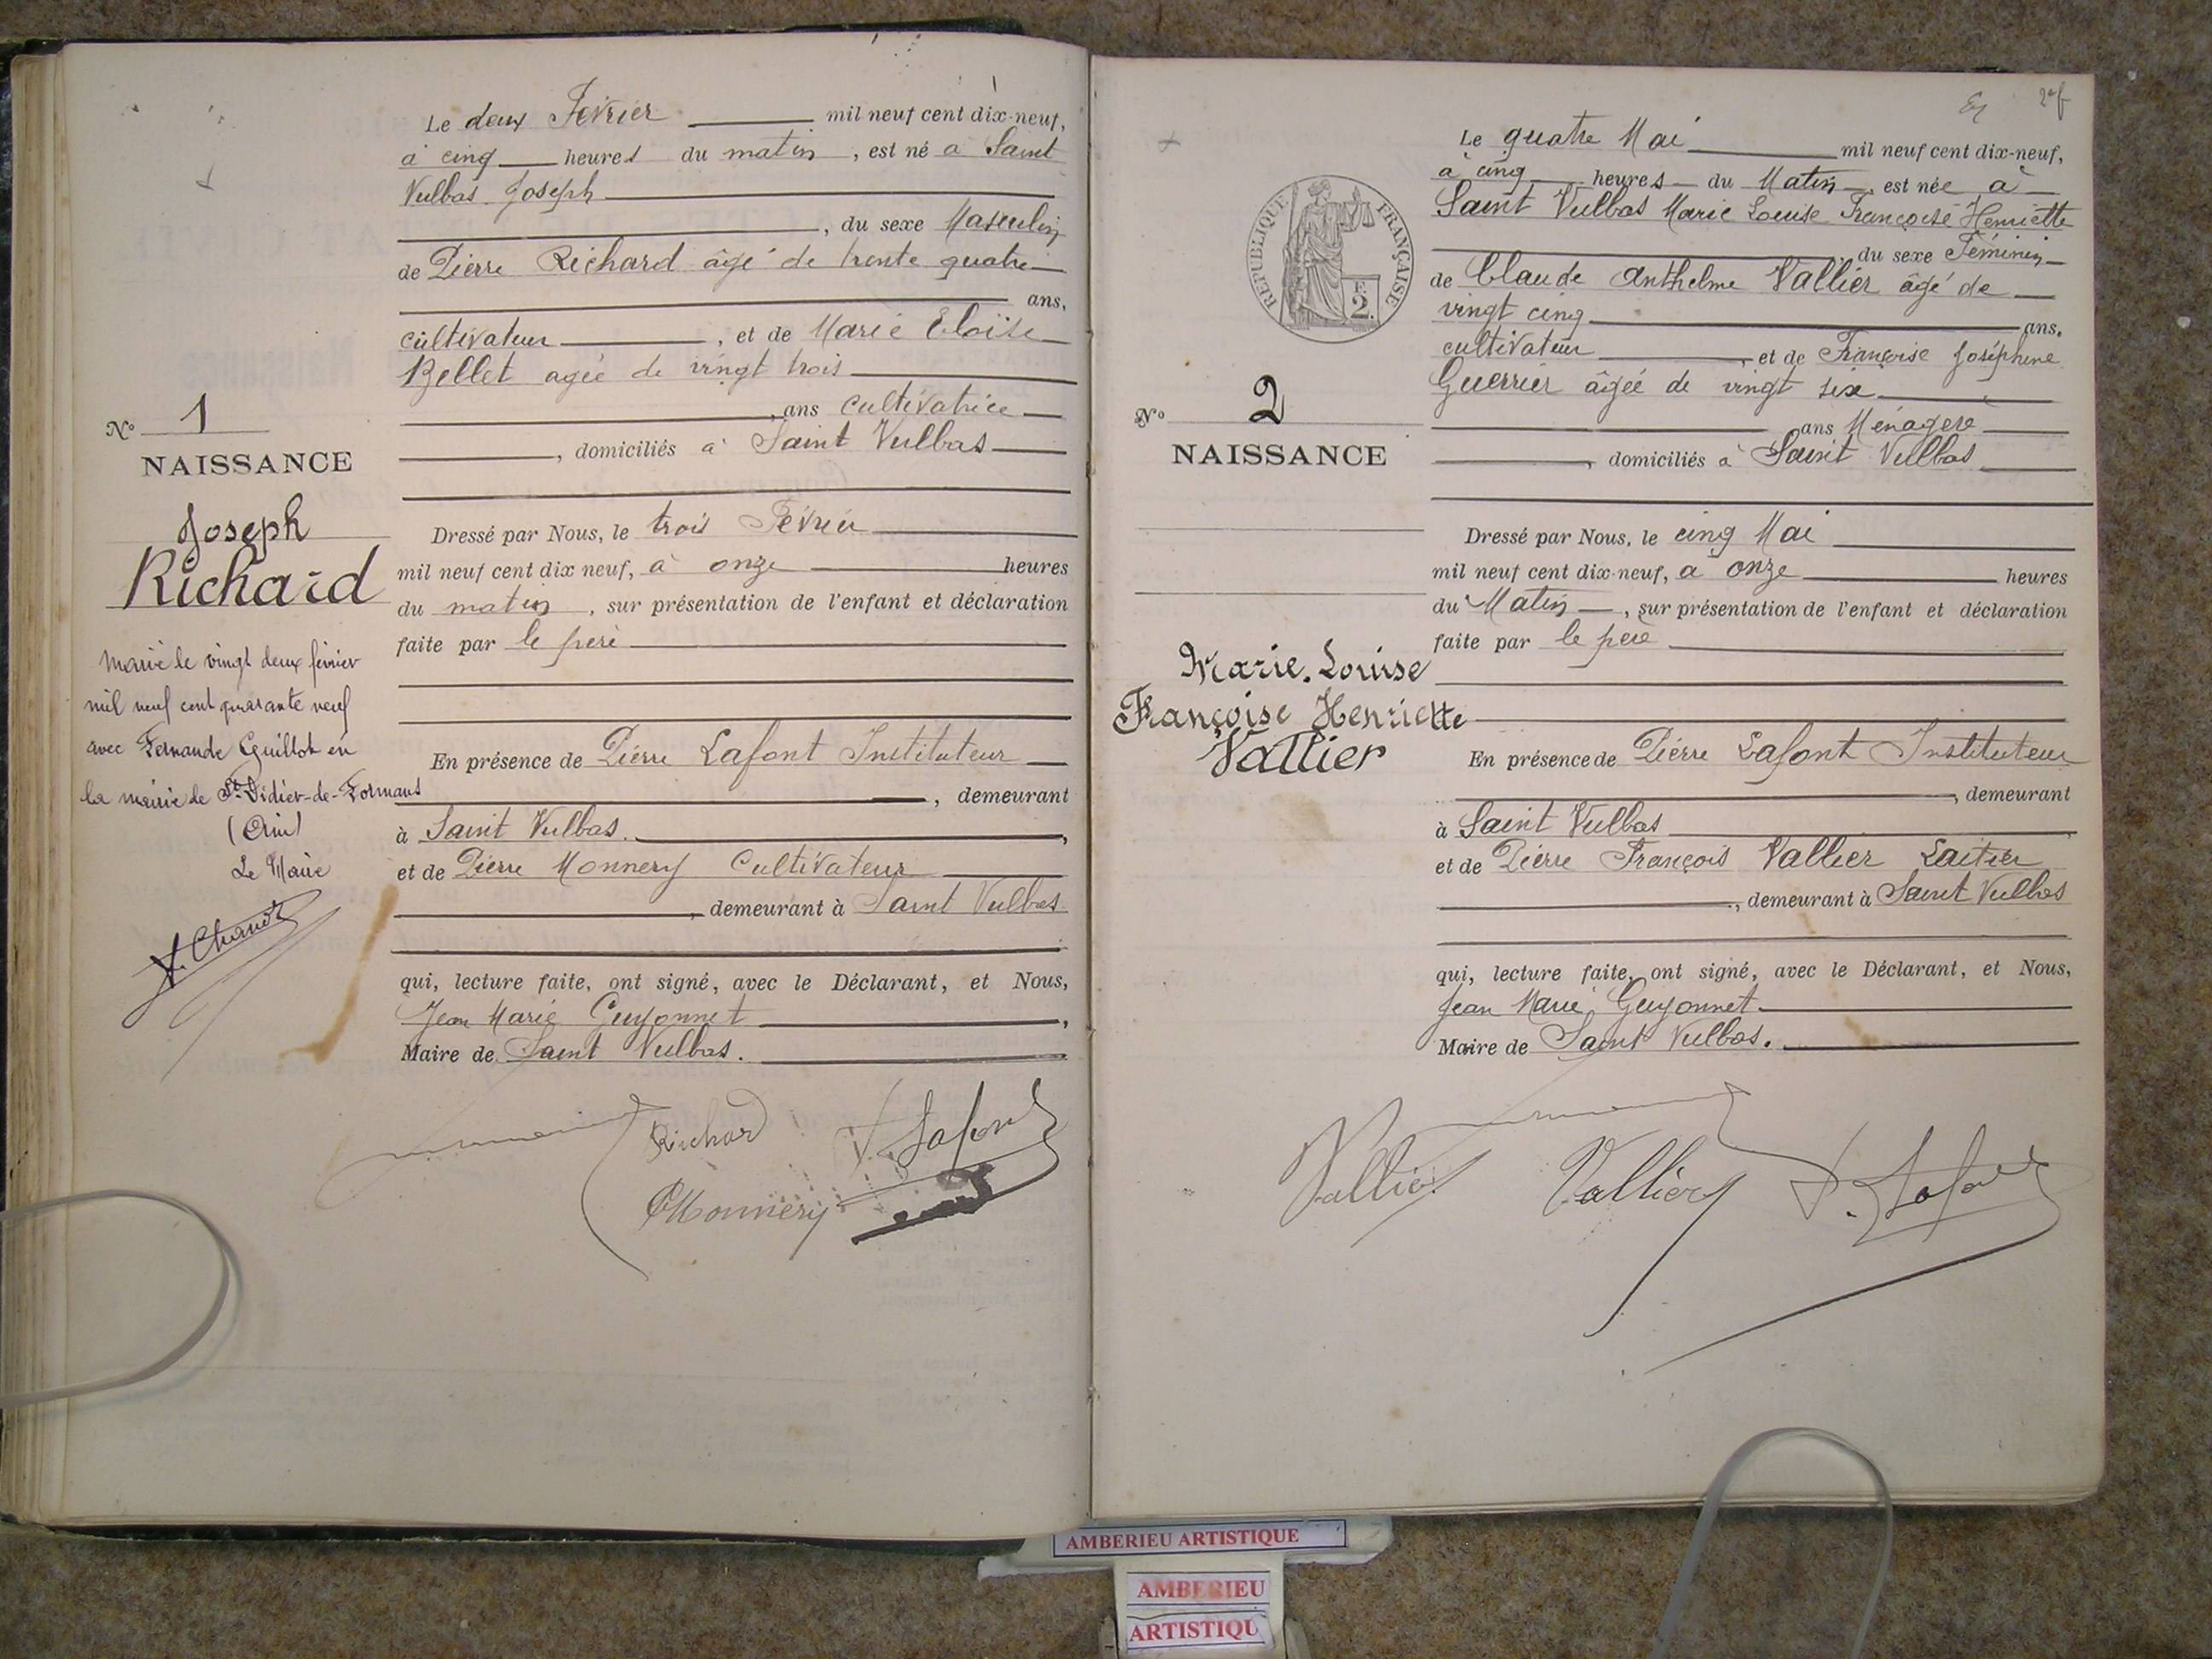 Le deux Fevrier mil neuf cent dix-neuf,
à cinq heures du matin, est né à Saint
Vulbas Joseph
, du sexe Masculin
de Pierre Richard âgé de trente quatre
ans,
cultivateur, et de Marie Eloïse
Bellet agée de vingt trois
, ans cultivatrice
, domiciliés à Saint Vulbas
Nº 1
NAISSANCE
Joseph
Richard
Dressé par Nous, le trois Février
mil neuf cent dix neuf, à onze heures
du matin, sur présentation de l'enfant et déclaration
faite par le père
Marié le vingt deux février
mil neuf cent quarante neuf
avec Fernande Guillot en
la mairie de St Didier-de-Formans
(Ain)
Le Maire
En présence de Pierre Lafont Instituteur
, demeurant
à Saint Vulbas,
et de Pierre Monnery Cultivateur
, demeurant à Saint Vulbas
qui, lecture faite, ont signé, avec le Déclarant, et Nous,
Jean Marie Guyonnet,
Maire de Saint Vulbas.
Richard P. Lafont
Monnery
2 f
Le quatre Mai mil neuf cent dix-neuf,
à cinq heures du Matin, est née à
Saint Vulbas Marie Louise Françoise Henriette
du sexe Féminin
de Claude Anthelme Vallier âgé de
vingt cinq ans,
cultivateur, et de Françoise Joséphine
Guerrier âgée de vingt six
ans Ménagère
, domiciliés à Saint Vulbas
RÉPUBLIQUE FRANÇAISE
F.
2.
Nº 2
NAISSANCE
Marie-Louise
Françoise Henriette
Vallier
Dressé par Nous, le cinq Mai
mil neuf cent dix-neuf, à onze heures
du Matin, sur présentation de l'enfant et déclaration
faite par le père
En présence de Pierre Lafont Instituteur
, demeurant
à Saint Vulbas
et de Pierre François Vallier Laitier
, demeurant à Saint Vulbas
qui, lecture faite, ont signé, avec le Déclarant, et Nous,
Jean Marie Guyonnet
Maire de Saint Vulbas.
Vallier Vallier P. Lafont
AMBERIEU ARTISTIQUE
AMBERIEU
ARTISTIQU